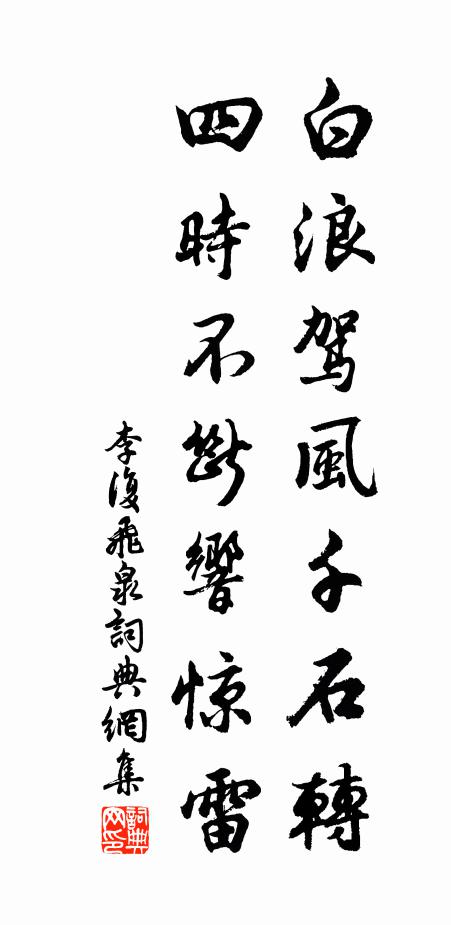 白浪駕風千石轉
四時不斷響惊雷
李復飛泉詞典網集
詞典网印